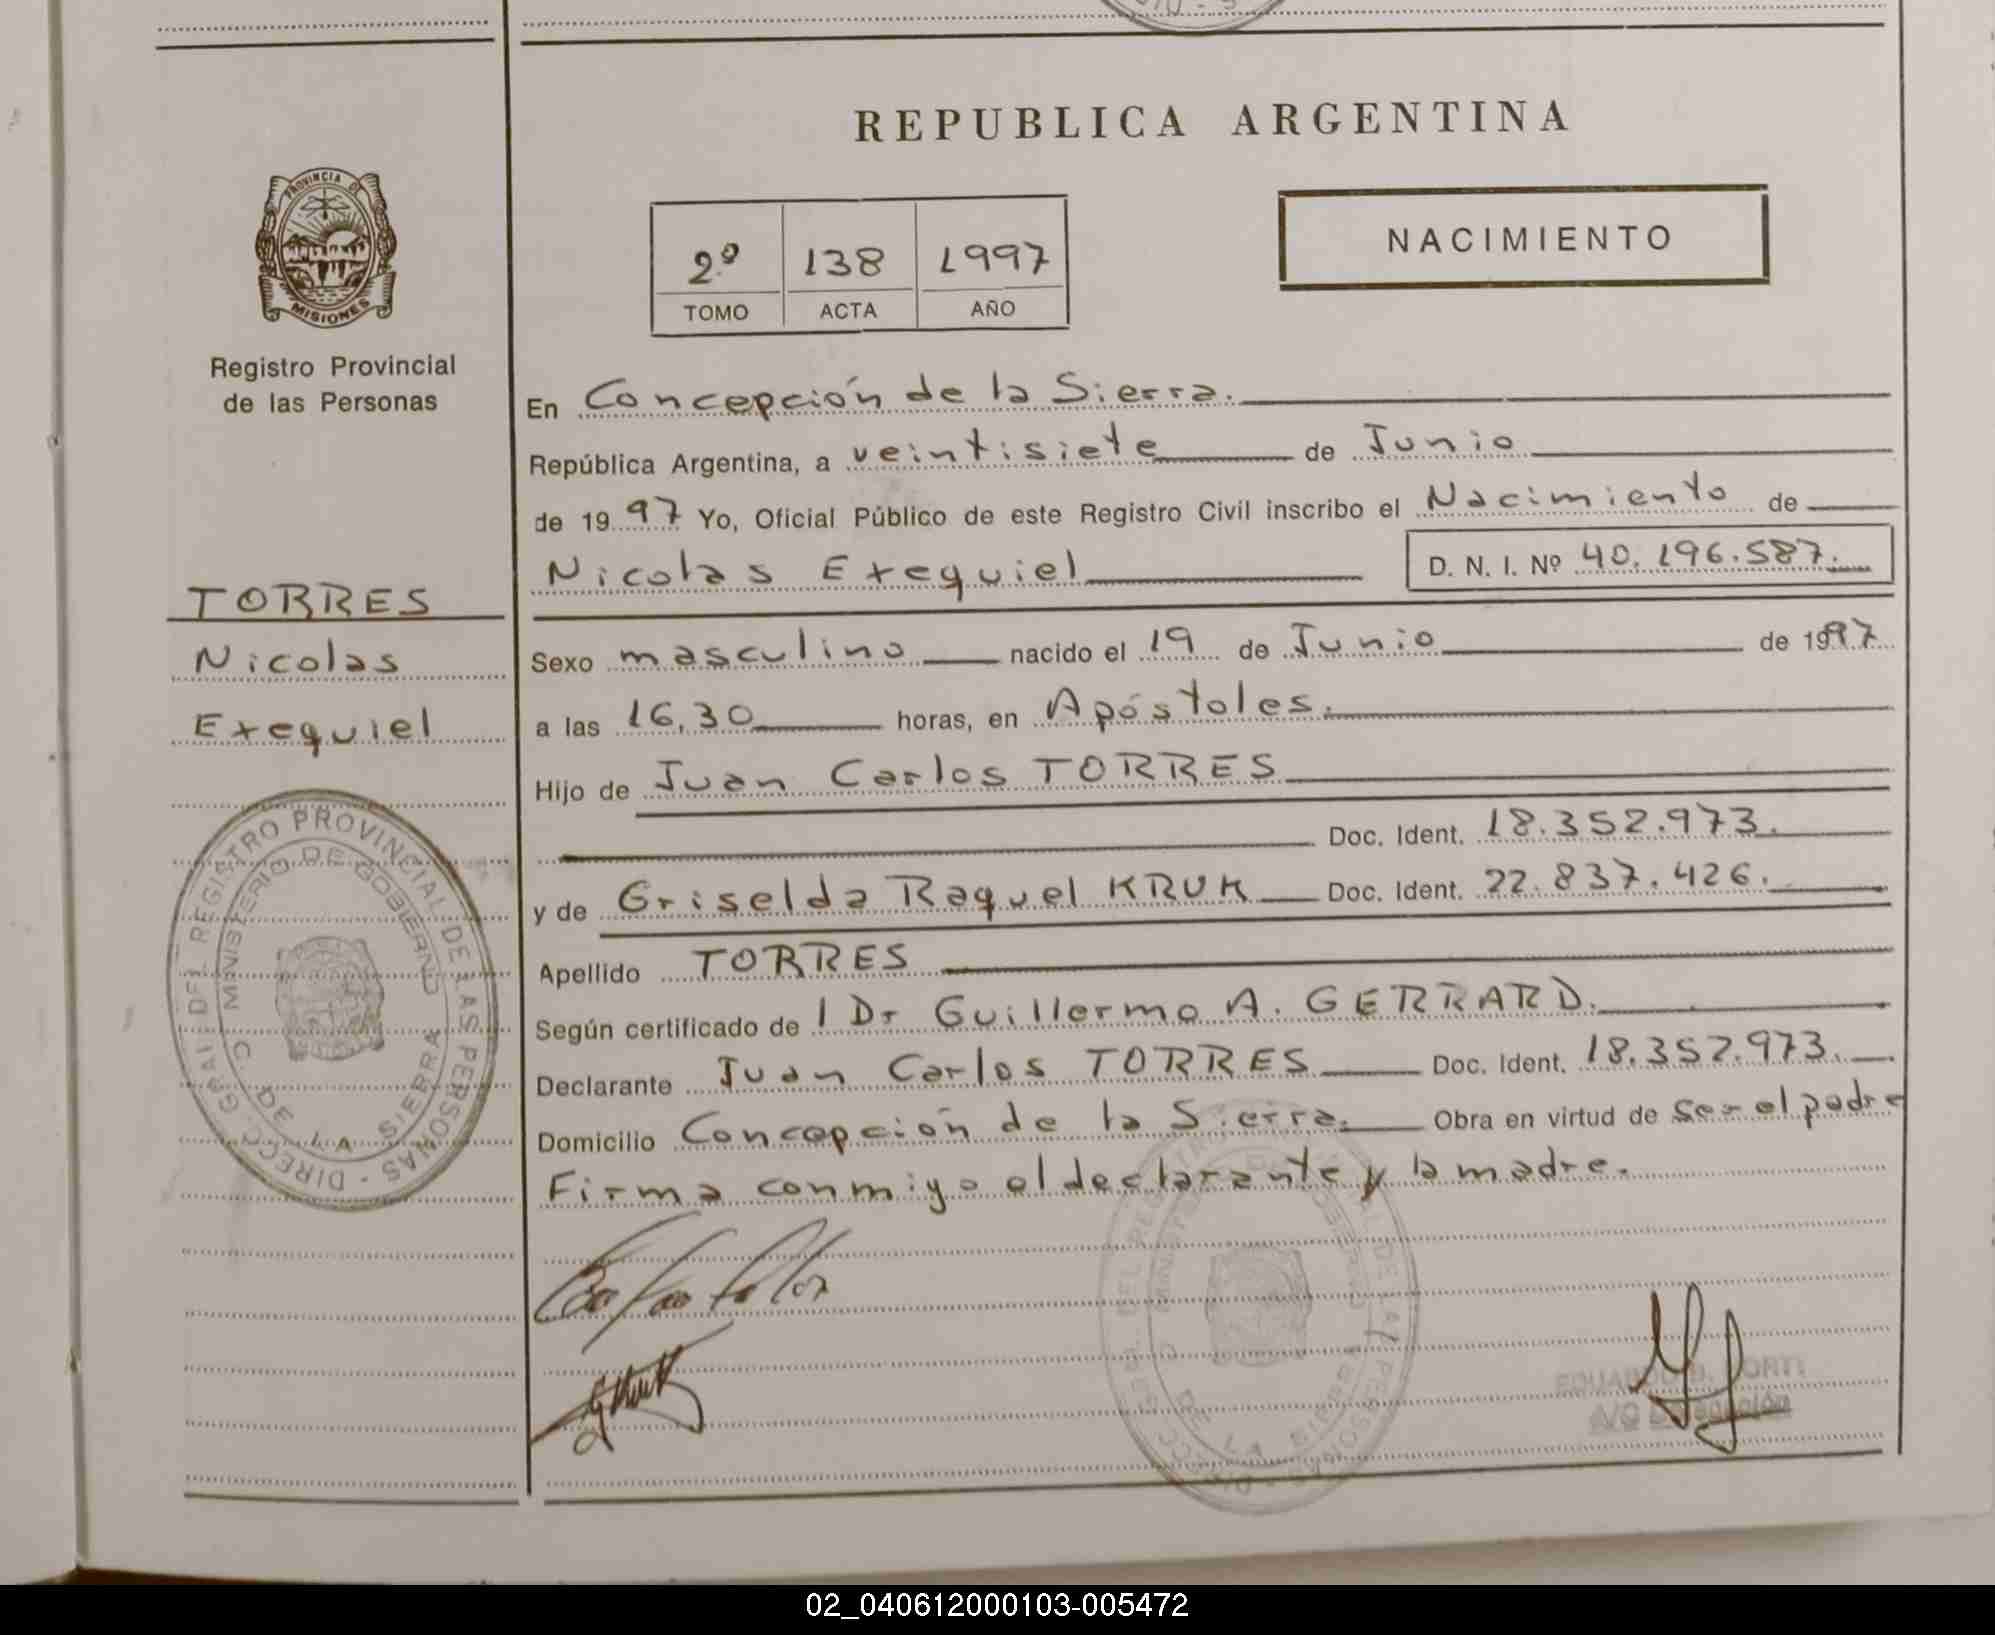 REPUBLICA ARGENTINA
NACIMIENTO
2º 138 1997
TOMO ACTA AÑO
PROVINCIA DE
MISIONES
Registro Provincial
de las Personas
TORRES
Nicolas
Exequiel
En Concepción de la Sierra.
República Argentina, a veintisiete de Junio
de 1997 Yo, Oficial Público de este Registro Civil inscribo el Nacimiento de
Nicolas Exequiel D. N. I. Nº 40.196.587.
Sexo masculino nacido el 19 de Junio de 1997
a las 16,30 horas, en Apóstoles.
Hijo de Juan Carlos TORRES
Doc. Ident. 18.352.973.
y de Griselda Raquel KRUK Doc. Ident. 22.837.426.
Apellido TORRES
Según certificado de l Dr Guillermo A. GERRARD.
Declarante Juan Carlos TORRES Doc. Ident. 18.352.973.
Domicilio Concepción de la Sierra. Obra en virtud de ser el padre
Firma conmigo el declarante y la madre.
DIRECC. GRAL. DEL REGISTRO PROVINCIAL DE LAS PERSONAS
MINISTERIO DE GOBIERNO
C. DE LA SIERRA
02_040612000103-005472